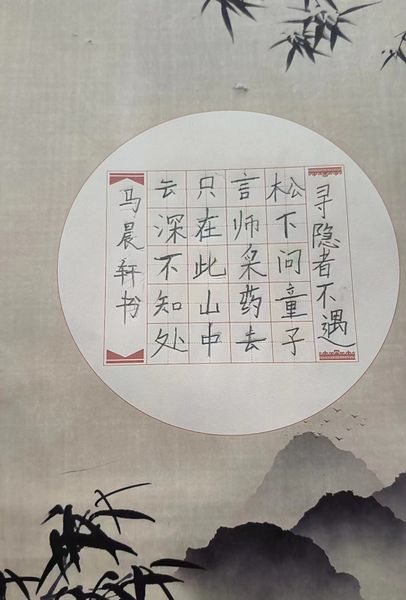 寻隐者不遇
松下问童子
言师采药去
只在此山中
云深不知处
马晨轩书